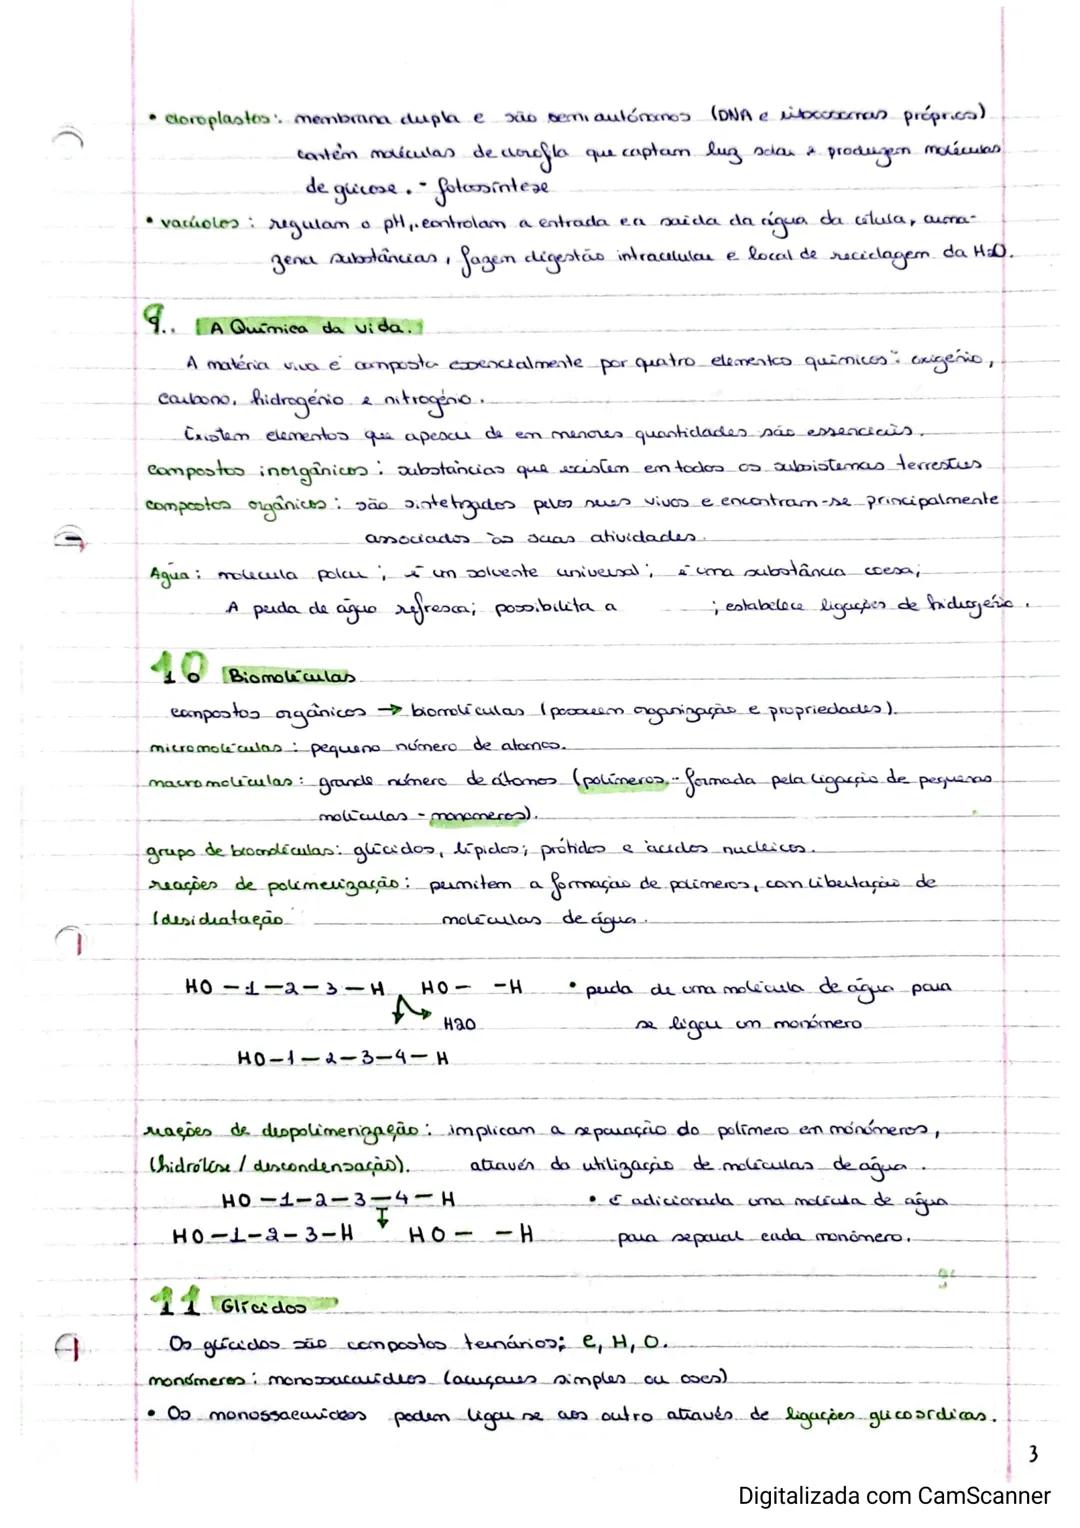 • cloroplastos: membrana dupla e são semi autónomos (DNA e ribossomas próprios)
contêm moléculas de clorofila que captam luz solar e produzem moléculas
de glicose. - fotossíntese
• vacúolos: regulam o pH, controlam a entrada e a saída da água da célula, arma-
zena substâncias, fazem digestão intracelular e local de reciclagem da H2O.
9. A Química da vida.
A matéria viva é composta essencialmente por quatro elementos químicos: oxigénio,
carbono, hidrogénio e nitrogénio.
Existem elementos que apesar de em menores quantidades são essenciais.
compostos inorgânicos: substâncias que existem em todos os subsistemas terrestres
compostos orgânicos: são sintetizados pelos seres vivos e encontram-se principalmente
associados às suas atividades.
Água: molécula polar; é um solvente universal; é uma substância coesa;
A perda de água refresca; possibilita a ; estabelece ligações de hidrogénio.
10 Biomoléculas
compostos orgânicos → biomoléculas (possuem organização e propriedades).
micromoléculas: pequeno número de átomos.
macromoléculas: grande número de átomos (polímeros - formada pela ligação de pequenas
moléculas - monómeros).
grupo de biomoléculas: glícidos, lípidos; prótidos e ácidos nucleicos.
reações de polimerização: permitem a formação de polímeros, com libertação de
(desidratação moléculas de água.
HO – 1 – 2 – 3 – H HO – – H • perda de uma molécula de água para
H2O se ligar um monómero
HO – 1 – 2 – 3 – 4 – H
reações de despolimerização: implicam a separação do polímero em monómeros,
(hidrólise / descondensação). através da utilização de moléculas de água.
HO – 1 – 2 – 3 – 4 – H • É adicionada uma molécula de água
HO – 1 – 2 – 3 – H HO – – H para separar cada monómero.
11 Glícidos
Os glícidos são compostos ternários; C, H, O.
monómeros: monossacarídeos (açúcares simples ou oses)
• Os monossacarídeos podem ligar se aos outro através de ligações glicosídicas.
3
Digitalizada com CamScanner